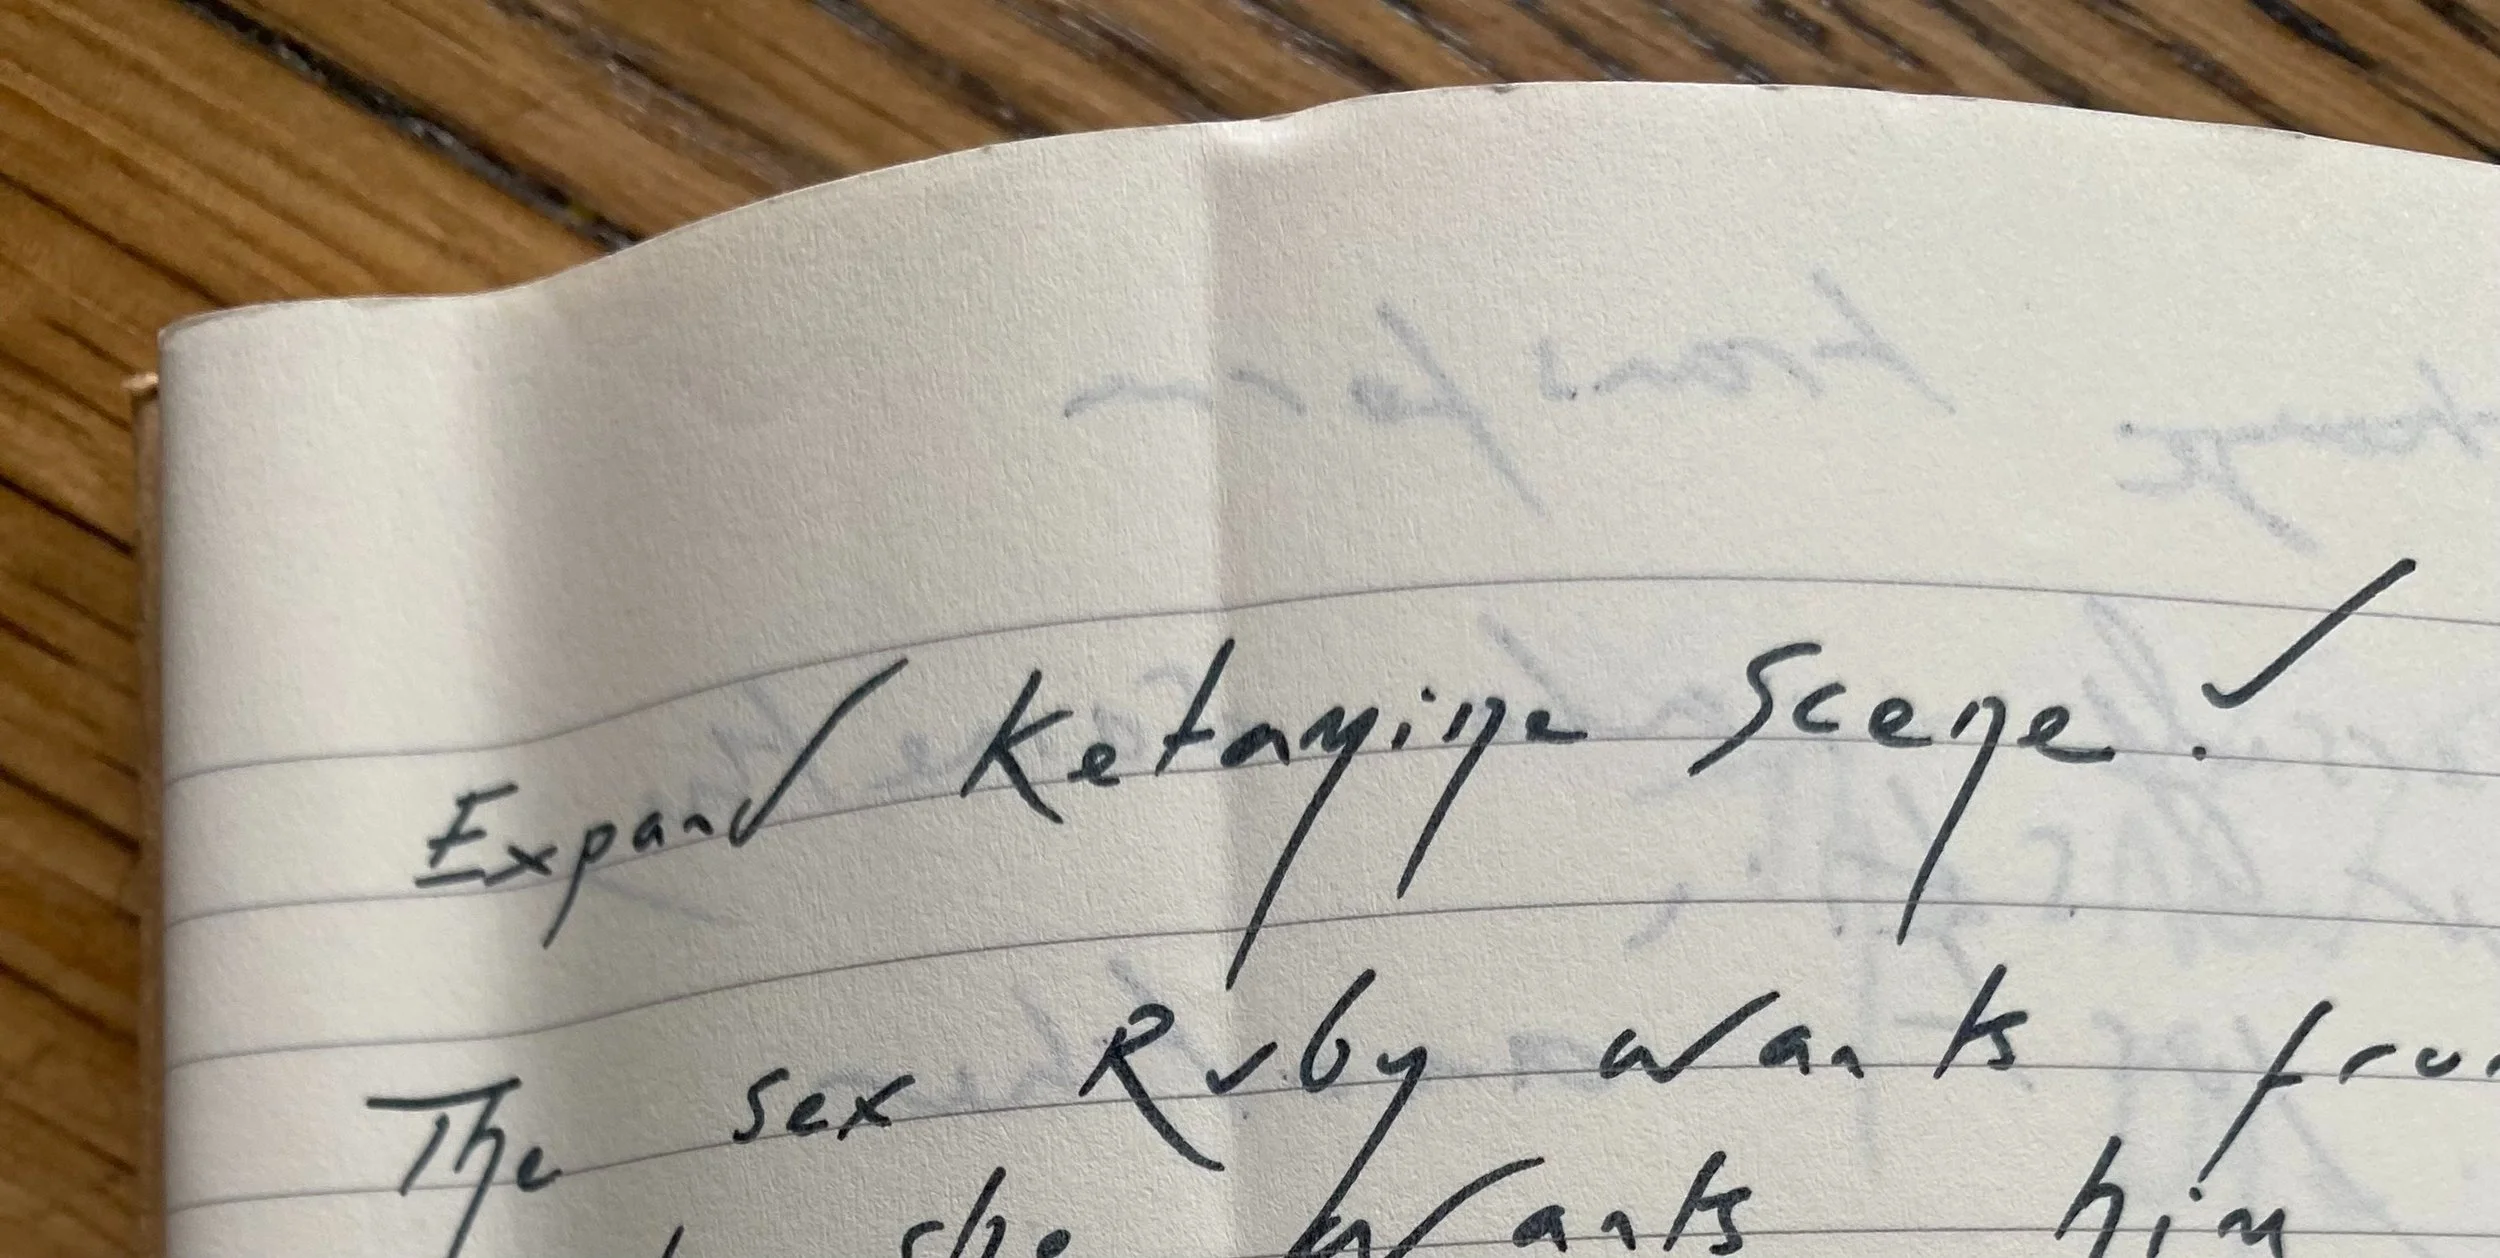 Expand Ketamine Scene. ✓
The sex Ruby wants
she wants him